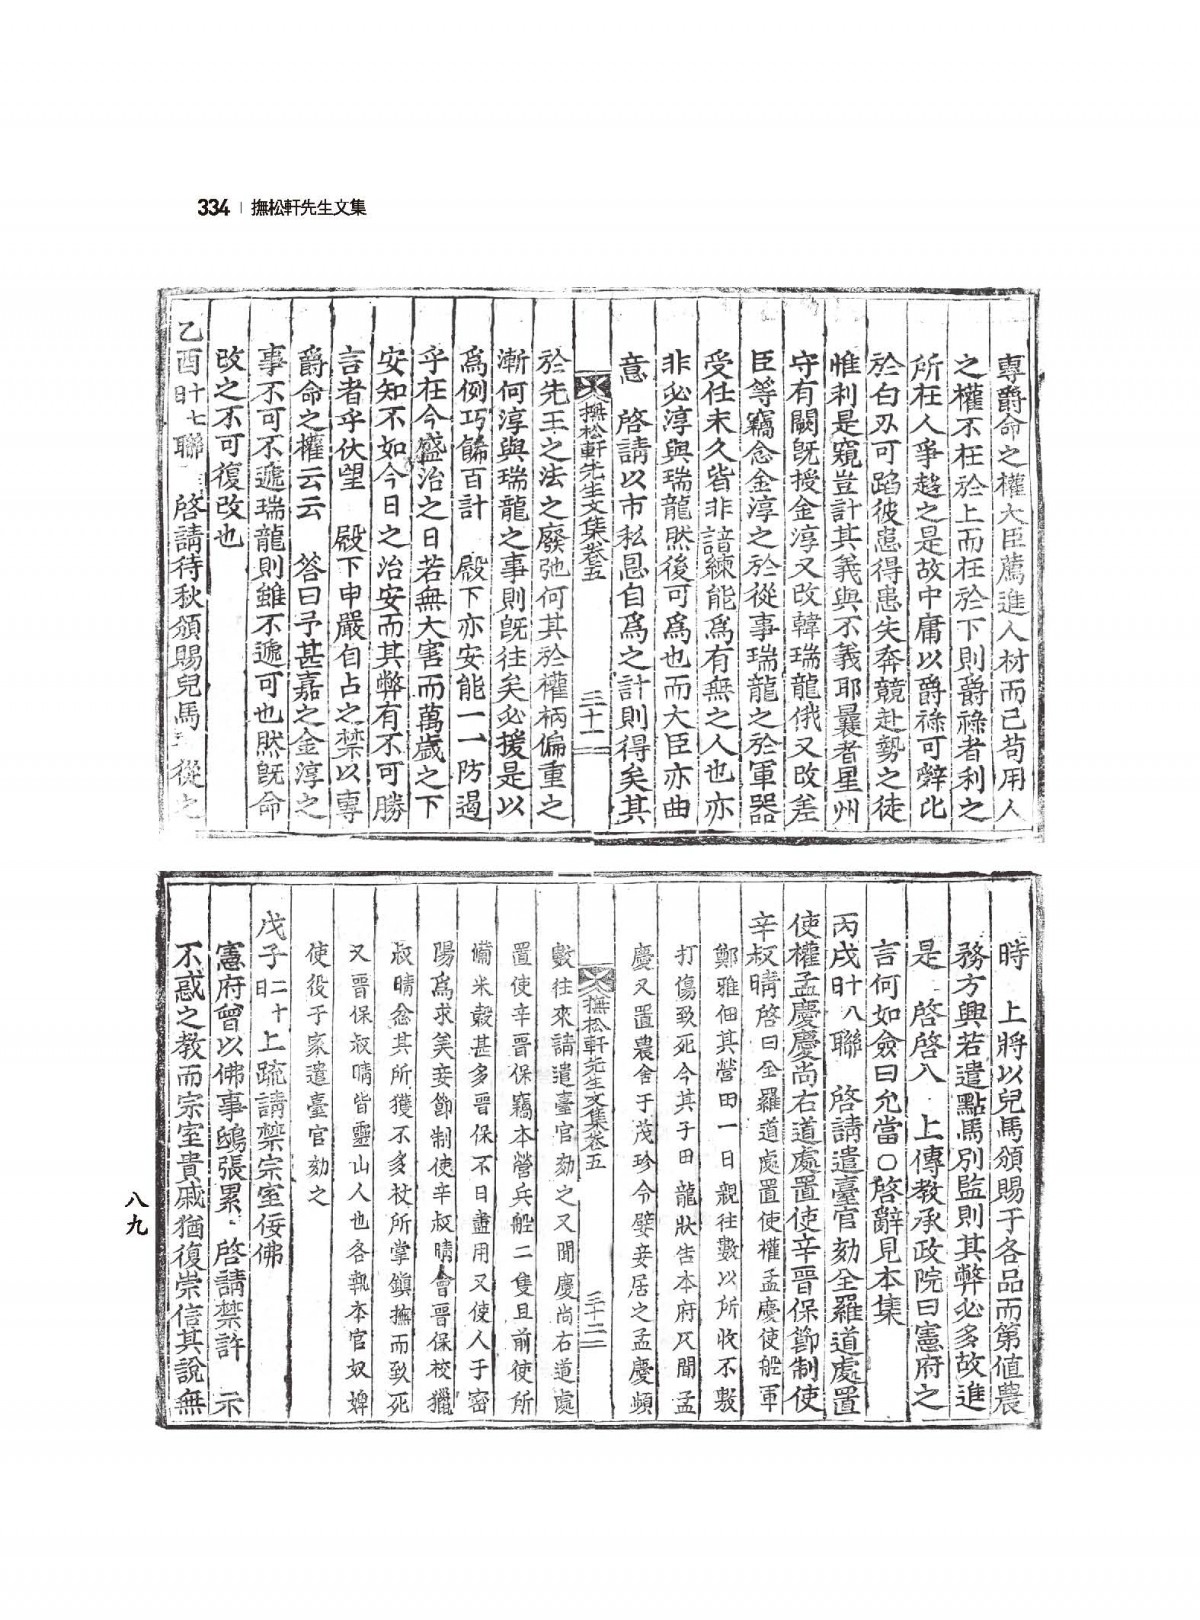 334 | 撫松軒先生文集
專爵命之權大臣薦進人材而已苟用人
之權不在於上而在於下則爵祿者利之
所在人爭趨之是故中庸以爵祿可辭比
於白刃可蹈彼患得患失奔競赴勢之徒
惟利是窺豈計其義與不義耶曩者星州
守有闕旣授金淳又改韓瑞龍俄又改差
臣等竊念金淳之於從事瑞龍之於軍器
受任未久皆非諳練能爲有無之人也亦
非必淳與瑞龍然後可爲也而大臣亦曲
意 啓請以市私恩自爲之計則得矣其
撫松軒先生文集卷五 三十一
於先王之法之廢弛何其於權柄偏重之
漸何淳與瑞龍之事則旣往矣必援是以
爲例巧餙百計 殿下亦安能一一防遏
乎在今盛治之日若無大害而萬歲之下
安知不如今日之治安而其弊有不可勝
言者乎伏望 殿下申嚴自占之禁以專
爵命之權云云 答曰予甚嘉之金淳之
事不可不遞瑞龍則雖不遞可也然旣命
改之不可復改也
乙酉十七日聯 啓請待秋頒賜兒馬 從之
時 上將以兒馬頒賜于各品而第値農
務方興若遣點馬別監則其弊必多故進
是 啓啓入 上傳敎承政院曰憲府之
言何如僉曰允當○啓辭見本集
丙戌十八日聯 啓請遣臺官劾全羅道處置
使權孟慶慶尙右道處置使辛晉保節制使
辛叔晴啓曰全羅道處置使權孟慶使船軍
鄭雅佃其營田一日親往數以所收不敷
打傷致死今其子田龍狀告本府又聞孟
慶又置農舍于茂珍令嬖妾居之孟慶頻
撫松軒先生文集卷五 三十二
數往來請遣臺官劾之又聞慶尙右道處
置使辛晉保竊本營兵船二隻且前使所
備米穀甚多晉保不日盡用又使人于密
陽爲求美妾節制使辛叔晴會晉保校獵
叔晴忿其所獲不多杖所掌鎭撫而致死
又晉保叔晴皆靈山人也各執本官奴婢
使役于家遣臺官劾之
戊子二十日上疏請禁宗室佞佛
憲府曾以佛事鴟張累 啓請禁許 示
不惑之敎而宗室貴戚猶復崇信其說無
八九